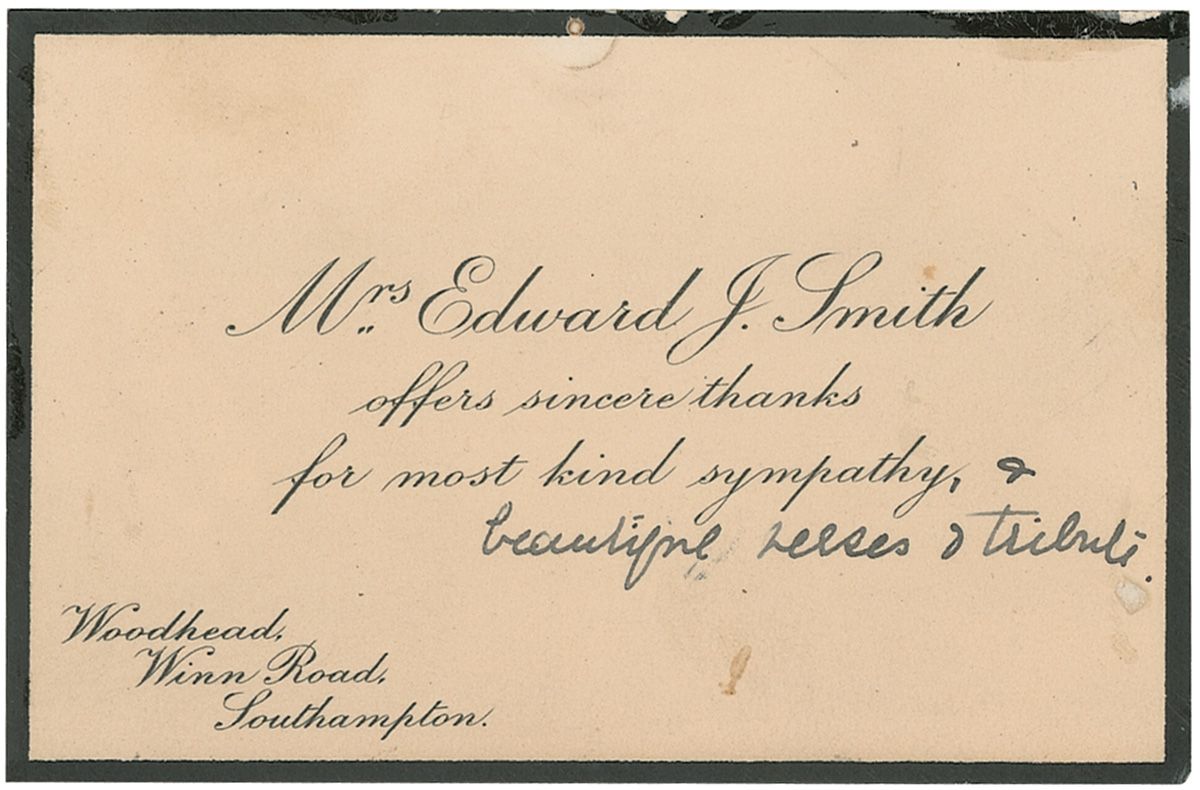 Mrs Edward J. Smith
offers sincere thanks
for most kind sympathy, &
beautiful verses & tribute.
Woodhead,
Winn Road,
Southampton.